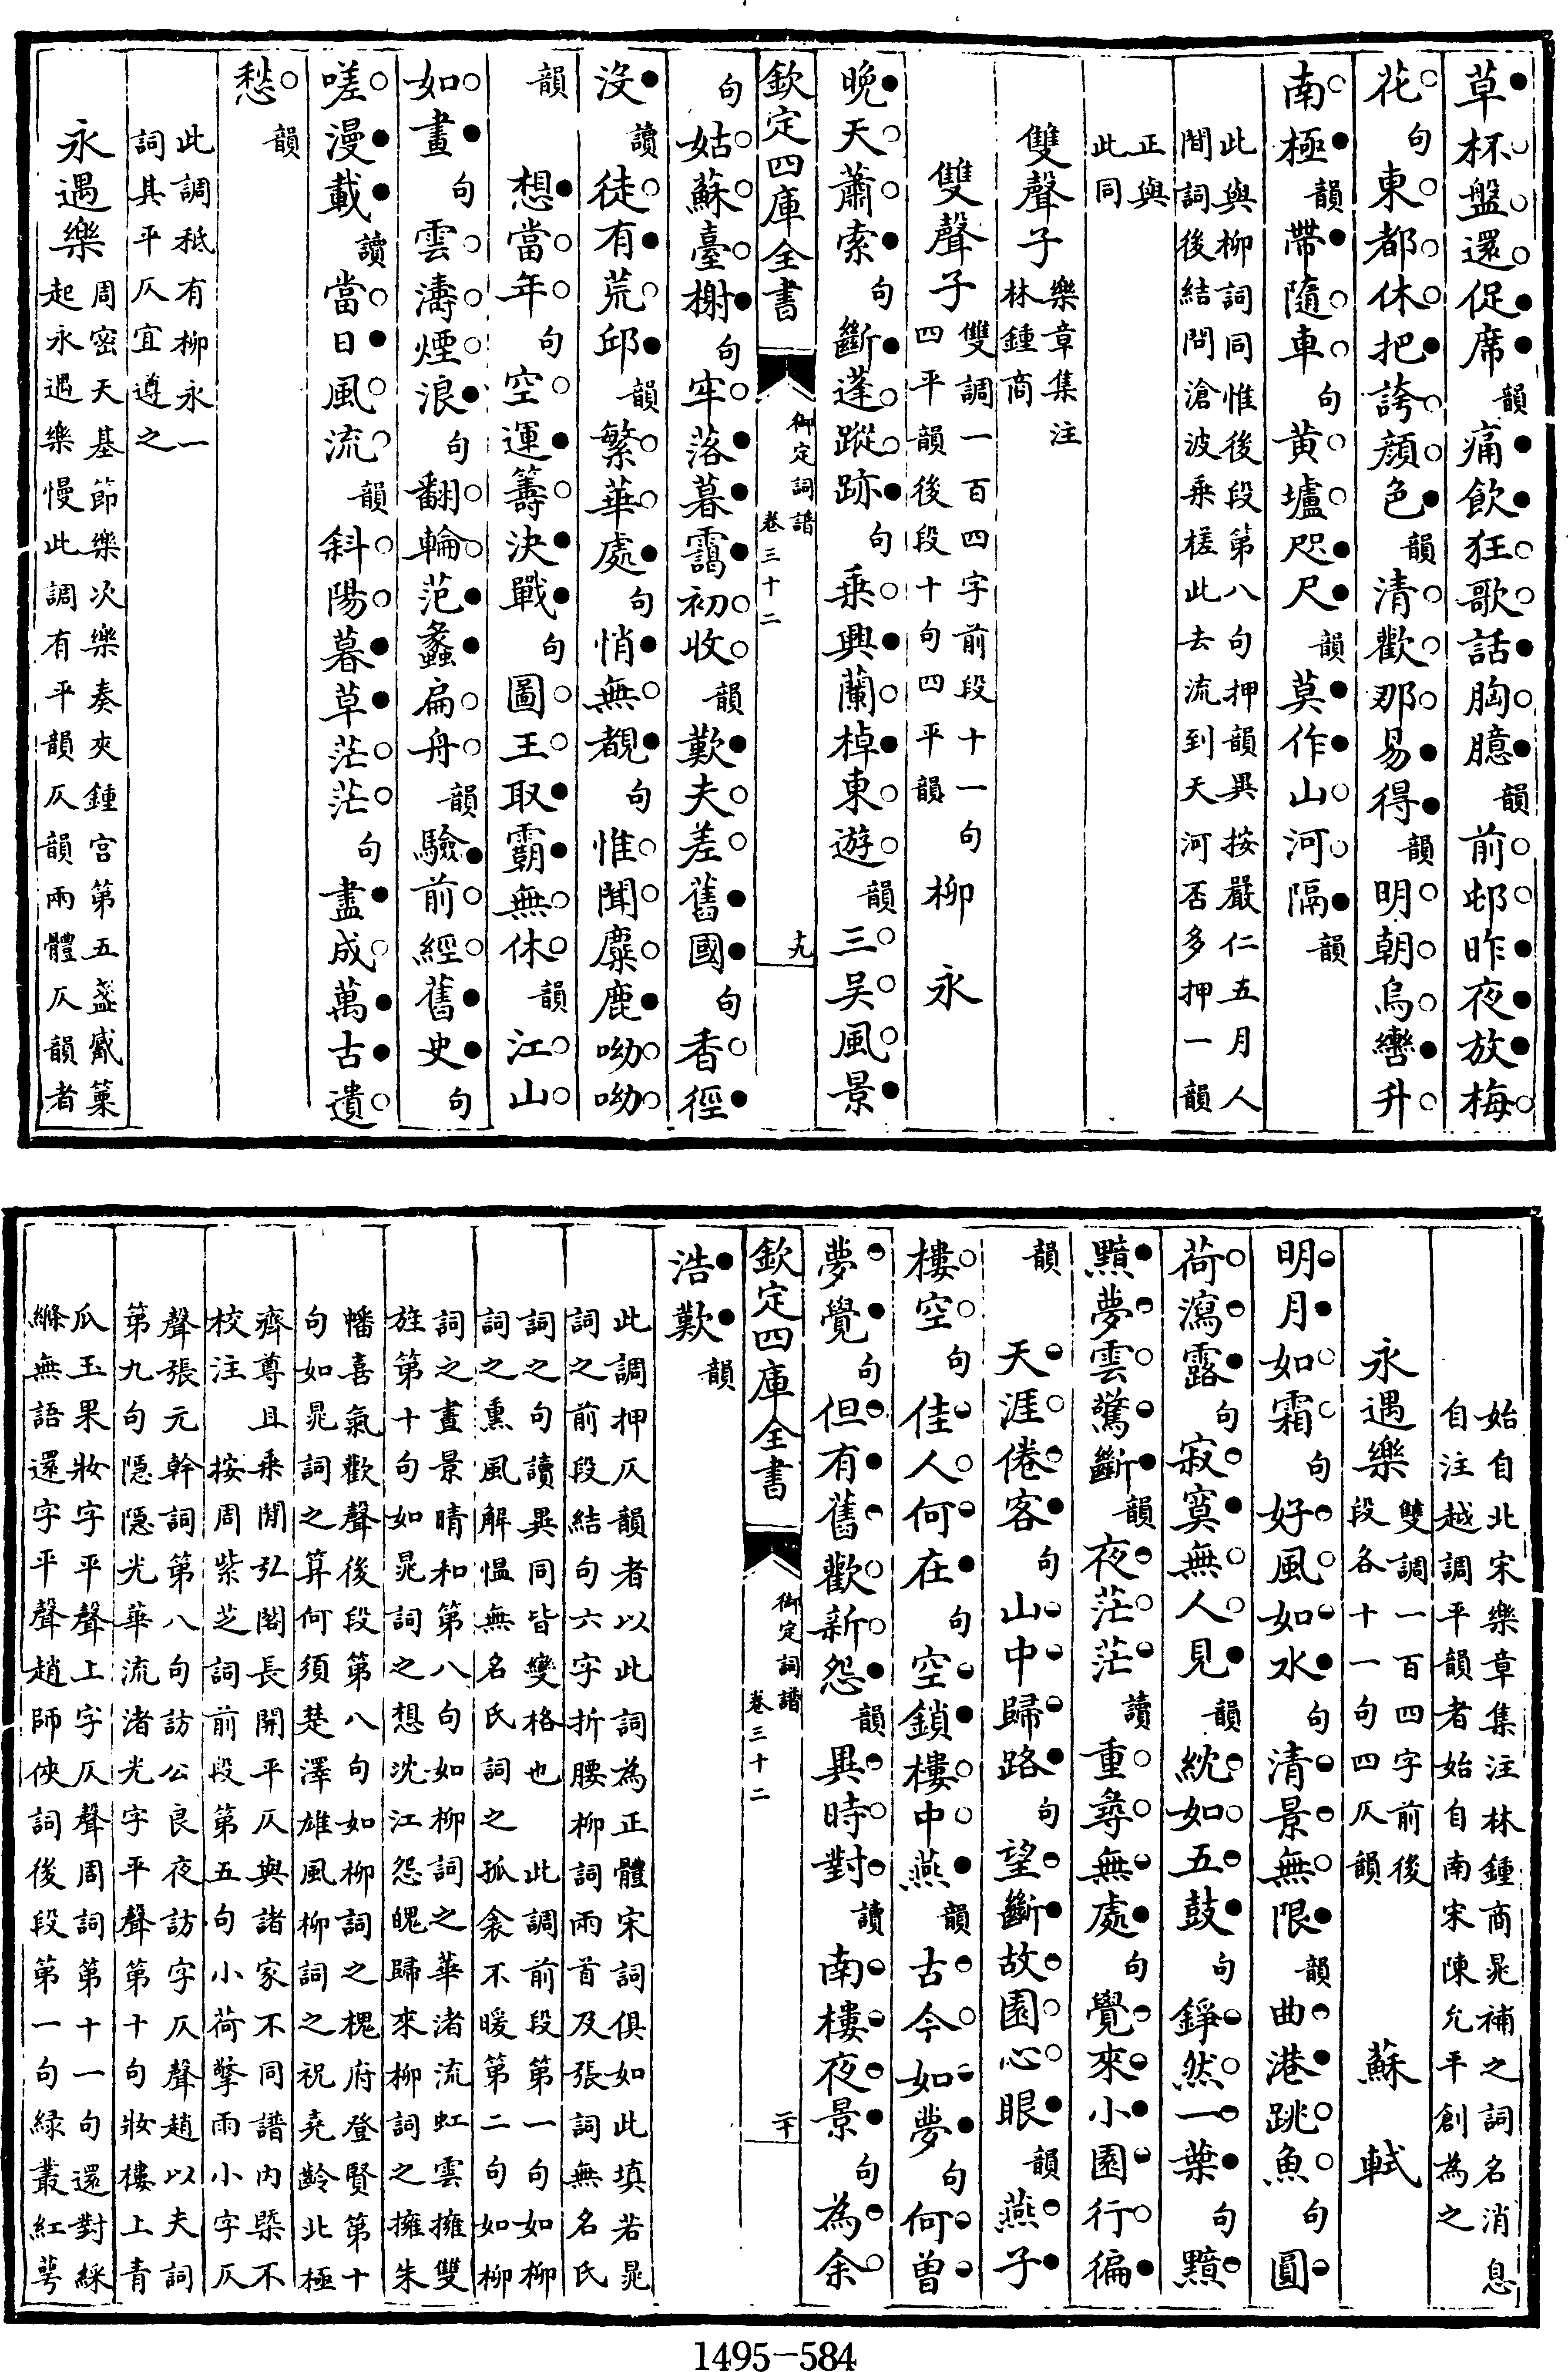 草杯盤還促席韻痛飲狂歌話胸臆韻前邨昨夜放梅
花句東都休把誇顔色韻清歡那易得韻明朝烏轡升
南極韻帶隨車句黄壚咫尺韻莫作山河隔韻
此與柳詞同惟後段第八句押韻異按嚴仁五月人
間詞後結問滄波乗槎此去流到天河否多押一韻
正與
此同
雙聲子樂章集注
林鍾商
雙聲子雙調一百四字前段十一句
四平韻後段十句四平韻柳永
晩天蕭索句斷蓬蹤跡句乗興蘭棹東遊韻三吴風景
欽定四庫全書 御定詞譜 卷三十二 十九
句姑蘇臺榭句牢落暮靄初收韻歎夫差舊國句香徑
沒讀徒有荒邱韻繁華處句悄無覩句惟聞麋鹿呦呦
韻想當年句空運籌決戰句圖王取霸無休韻江山
如畫句雲濤煙浪句翻輪范蠡扁舟韻驗前經舊史句
嗟漫載讀當日風流韻斜陽暮草茫茫句盡成萬古遺
愁韻
此調秪有柳永一
詞其平仄宜遵之
永遇樂周密天基節樂次樂奏夾鍾宫第五盞觱篥
起永遇樂慢此調有平韻仄韻兩體仄韻者
始自北宋樂章集注林鍾商晁補之詞名消息
自注越調平韻者始自南宋陳允平創為之
永遇樂雙調一百四字前後
段各十一句四仄韻蘇軾
明月如霜句好風如水句清景無限韻曲港跳魚句圓
荷瀉露句寂寞無人見韻紞如五鼓句錚然一葉句黯
黯夢雲驚斷韻夜茫茫讀重尋無處句覺來小園行徧
韻天涯倦客句山中歸路句望斷故園心眼韻燕子
樓空句佳人何在句空鎖樓中燕韻古今如夢句何曾
夢覺句但有舊歡新怨韻異時對讀南樓夜景句為余
欽定四庫全書 御定詞譜 卷三十二 二十
浩歎韻
此調押仄韻者以此詞為正體宋詞俱如此填若晁
詞之前段結句六字折腰柳詞兩首及張詞無名氏
詞之句讀異同皆變格也此調前段第一句如柳
詞之熏風解愠無名氏詞之孤衾不暖第二句如柳
詞之晝景晴和第八句如柳詞之華渚流虹雲擁雙
旌第十句如晁詞之想沈江怨魄歸來柳詞之擁朱
幡喜氣歡聲後段第八句如柳詞之槐府登賢第十
句如晁詞之算何須楚澤雄風柳詞之祝堯齡北極
齊尊且乗閒弘閣長開平仄與諸家不同譜内槩不
校注按周紫芝詞前段第五句小荷擎雨小字仄
聲張元幹詞第八句訪公良夜訪字仄聲趙以夫詞
第九句隠隠光華流渚光字平聲第十句妝樓上青
瓜玉果妝字平聲上字仄聲周詞第十一句還對綵
縧無語還字平聲趙師俠詞後段第一句緑叢紅萼
1495-584